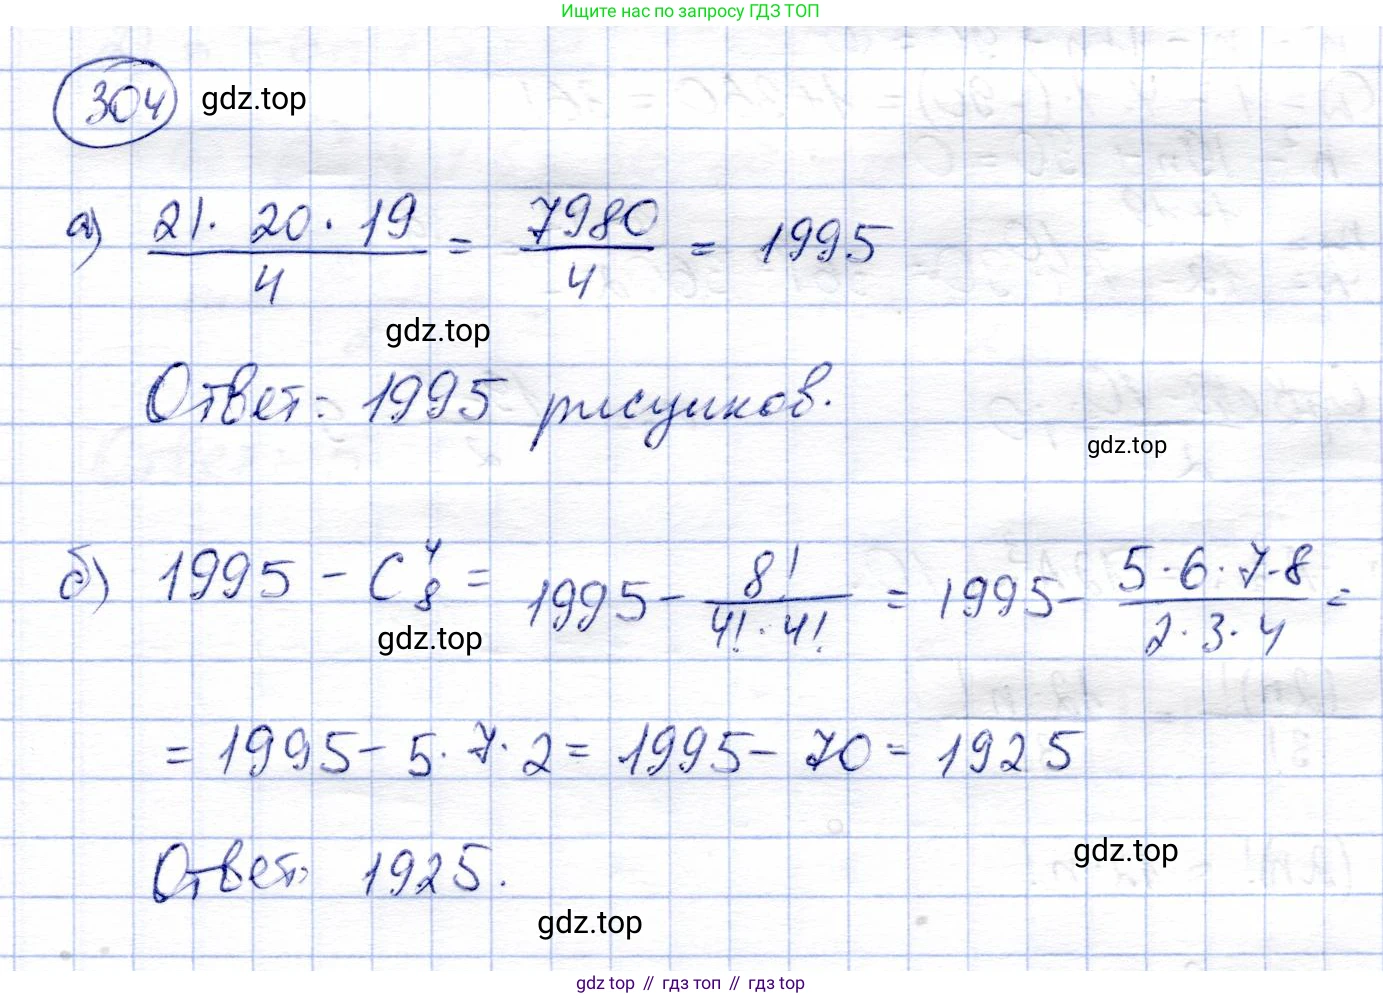 Ищите нас по запросу ГДЗ ТОП
304 gdz.top
а) 21 · 20 · 19 / 4 = 7980 / 4 = 1995
gdz.top
Ответ: 1995 рисунков.
gdz.top
б) 1995 - C_8^4 = 1995 - 8! / 4! · 4! = 1995 - 5 · 6 · 7 · 8 / 2 · 3 · 4 =
gdz.top
= 1995 - 5 · 7 · 2 = 1995 - 70 = 1925
Ответ: 1925.
gdz.top
gdz.top
gdz top // гдз топ // gdz top